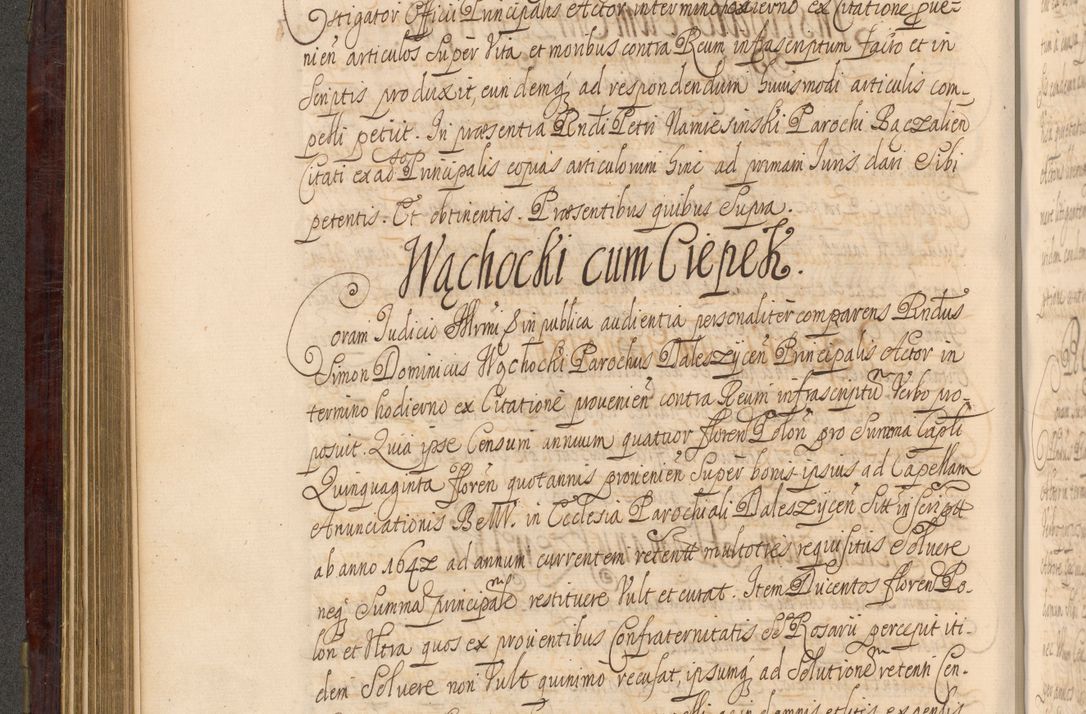 Instigator Officii Principalis Actor in termino hodierno ex Citatione prove-
nien̄ articulos Super Vita et moribus contra Reum infrascriptum facto et in
Scriptis produxit, eundemq́ ad respondendum huiusmodi articulis com-
pelli petiit. In præsentia Rndi Petri Namiesinski Parochi Baczalien
Citati ex ad Principalis copias articulorum hinc ad primam Iuris dari Sibi
petentis. Et obtinentis. Præsentibus quibus Supra.
Wąchocki cum Ciepek.
Coram Iudicio Illrmi & in publica audientia personaliter comparens Rndus
Simon Dominicus Wąchocki Parochus Daleszycen̄ Principalis Actor in
termino hodierno ex Citatione provenien̄ contra Reum infrascriptū Verbo pro-
posuit. Quia ipse Censum annuum quatuor floren Polon̄ pro Summa Capłi
Quinquaginta floren̄ quotannis provenien̄ Super bonis ipsius ad Capellam
Anunciationis B MV. in Ecclesia Parochiali Daleszycen̄ Sitt inscript
ab anno 1642 ad annum currentem retentt multoties requisitus Solvere
neq́ Summā principalē restituere Vult et curat. Item Ducentos floren Po-
lon et Ultra quos ex proventibus Confraternitatis SS Rosarii percepit iti-
dem Solvere non Vult quinimo recusat, ipsumq́ ad Solutionē retenti Cen-
in damnis et litis expensis